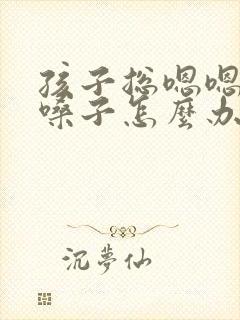 孩子總嗯嗯
嗓子怎麼办
沉夢仙